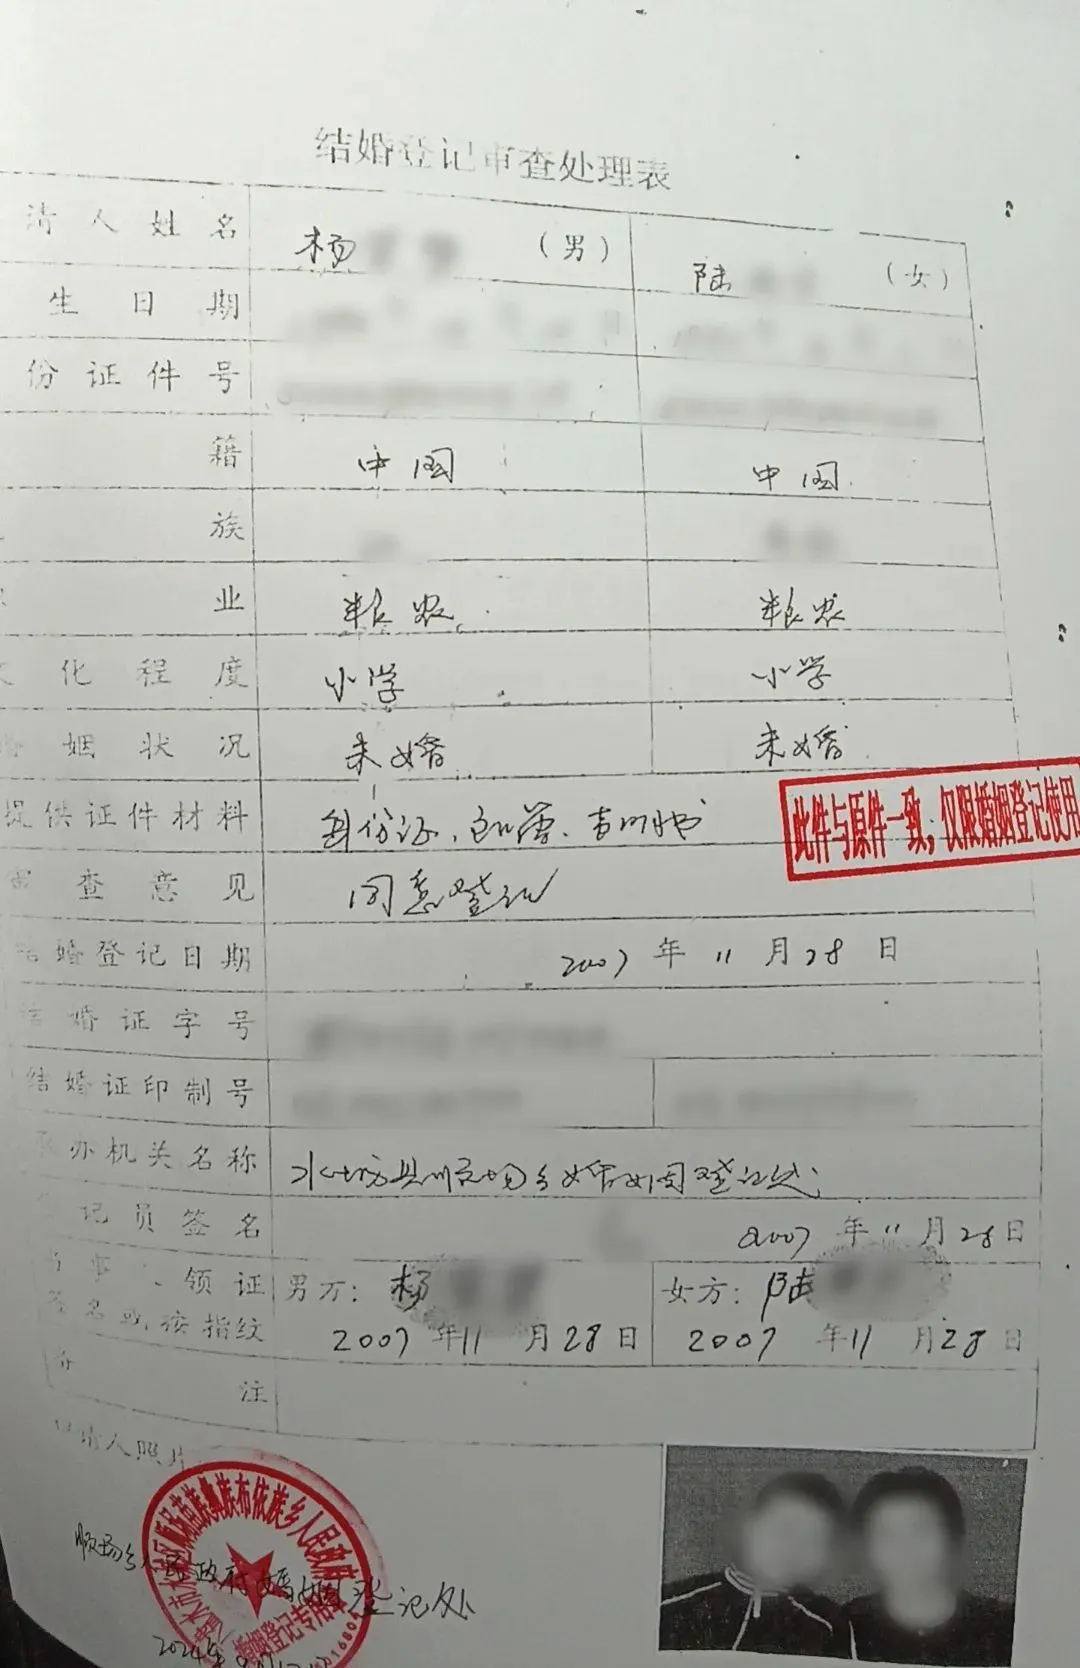 结婚登记审查处理表
请人姓名 杨 （男） 陆 （女）
生日期
份证件号
籍 中国 中国
族
业 粮农 粮农
化程度 小学 小学
婚姻状况 未婚 未婚
提供证件材料 身份证、户口簿、声明书
此件与原件一致，仅限婚姻登记使用
审查意见 同意登记
结婚登记日期 2007年11月28日
结婚证字号
结婚证印制号
承办机关名称 水城县顺场乡婚姻登记处
登记员签名 2007年11月28日
领证 男方：杨 女方：陆
签名或按指纹 2007年11月28日 2007年11月28日
备注
申请人照片
顺场乡人民政府婚姻登记处
苗族彝族布依族乡人民政府
婚姻登记专用章
2024年